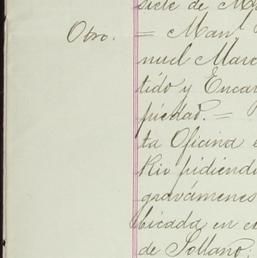 siete de Ma
Otro. = Man.l
nuel Marc
tido y Encar
piedad. =
ta Oficina e
Rio pidiendo
gravámenes
bicada en es
de Sollano: